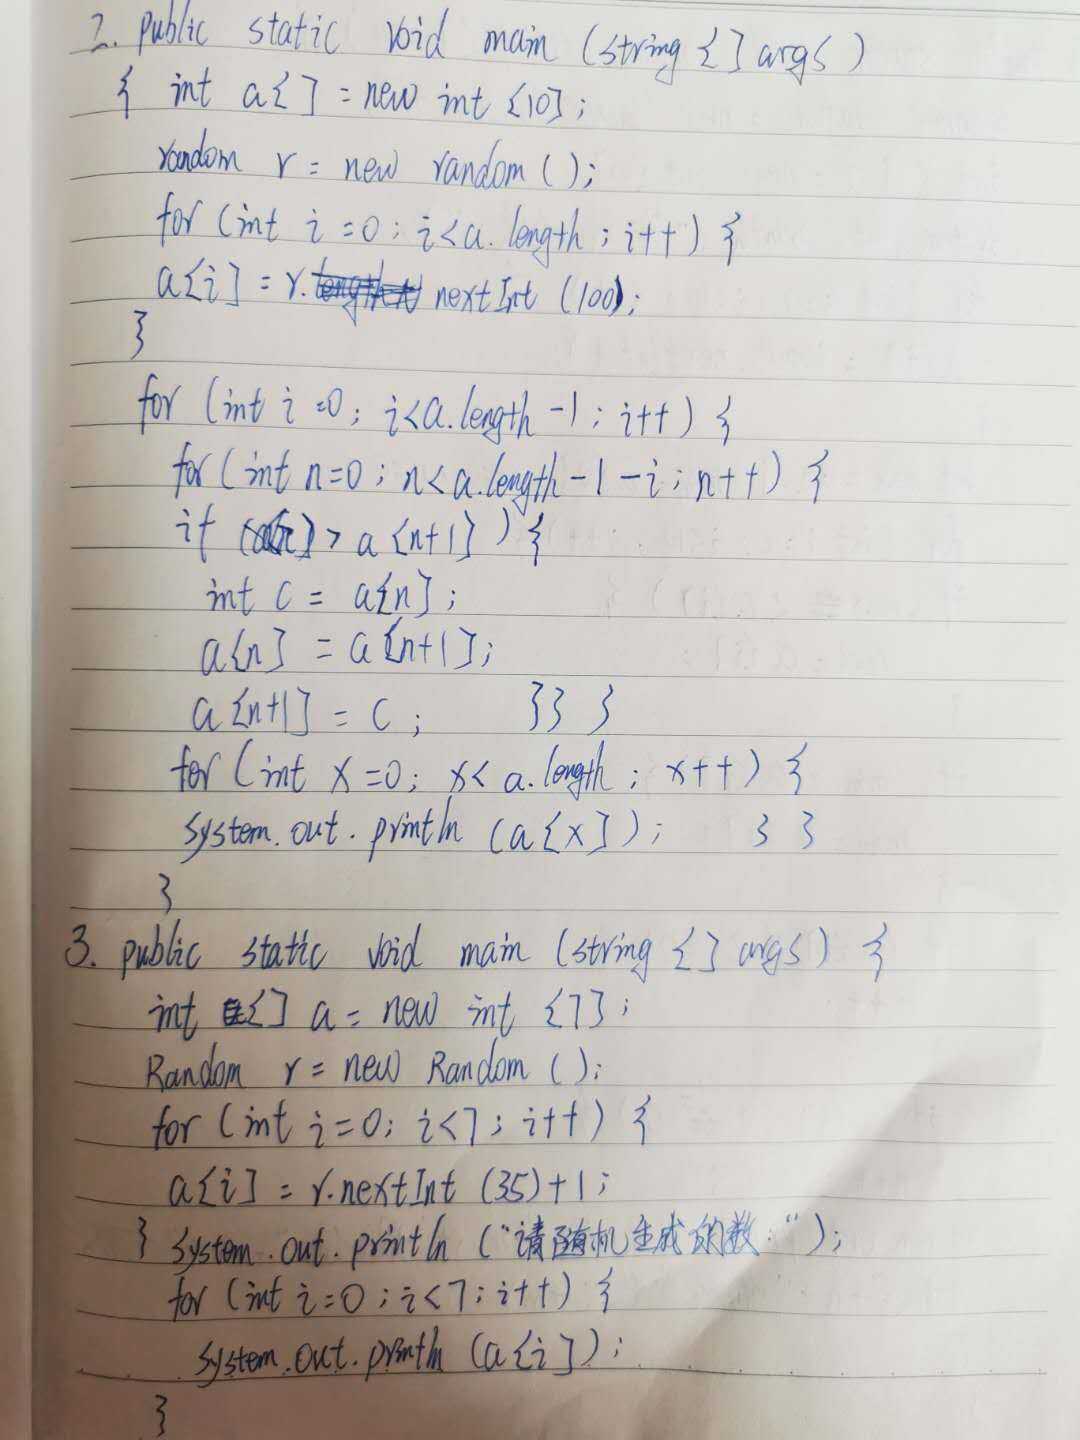 2. public static void main (string {] args)
{ int a{] = new int {10];
random r = new random ( );
for (int i =0; i<a. length ; i++) {
a{i] = r. nextInt (100);
}
for (int i =0; i<a.length -1; i++) {
for (int n=0 ; n<a.length-1-i; n++) {
if > a {n+1] ) {
int c = a{n];
a{n] = a{n+1];
a{n+1] = c; }} }
for (int x=0; x< a. length ; x++) {
system. out. println (a{x]); } }
}
3. public static void main (string {] args) {
int {] a = new int {7];
Random r = new Random ( );
for (int i=0; i<7; i++) {
a{i] = r.nextInt (35)+1;
} system. out. println ("请随机生成的数:");
for (int i=0; i<7; i++) {
system. out. println (a{i]);
}